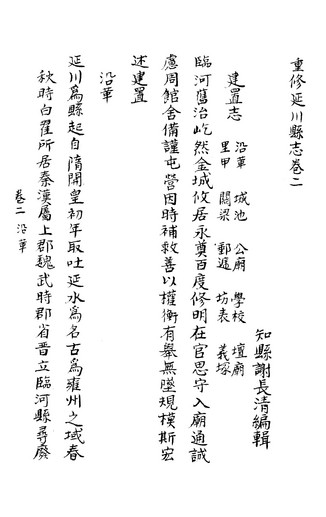 重修延川縣志卷二
知縣謝長清編輯
建置志
沿革 城池 公廨 學校 壇廟
里甲 關梁 郵遞 坊表 義塚
臨河舊治屹然金城攸居永奠百度修明在官思守入廟通誠
慮周館舍備謹屯營因時補救善以權衡有舉無墜規模斯宏
述建置
沿革
延川為縣起自隋開皇初年取吐延水為名古為雍州之域春
秋時白翟所居秦漢屬上郡魏武時郡省晋立臨河縣尋廢
卷二 沿革